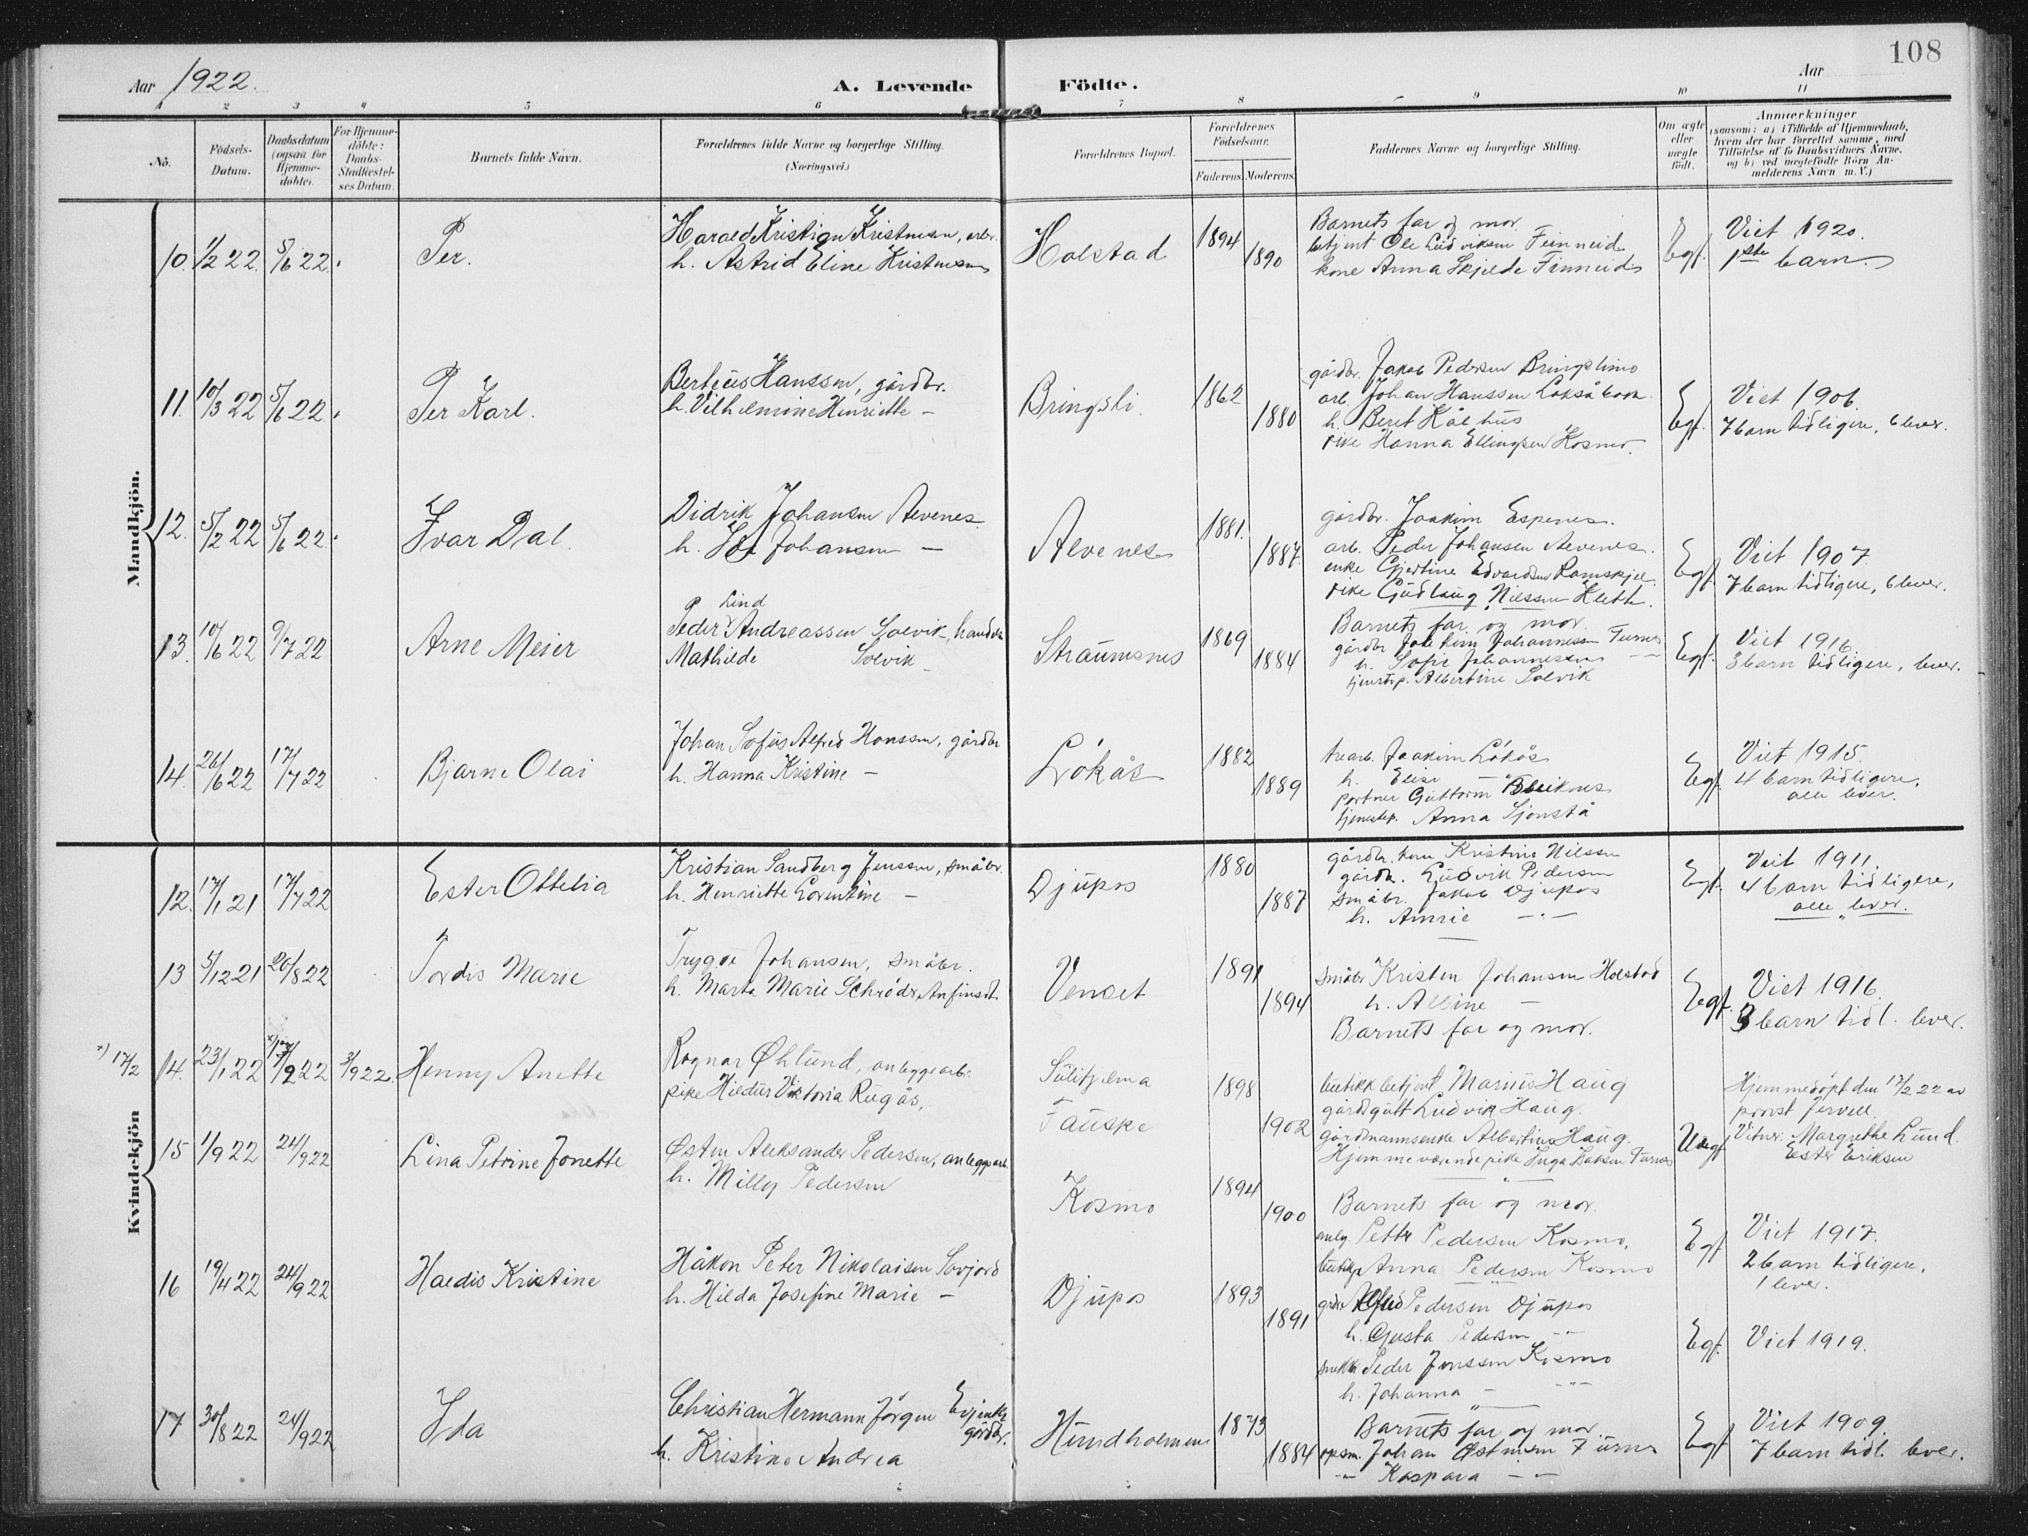 108
Aar 1922.
A. Levende Födte.
Aar
1 2 3 4 5 6 7 8 9 10 11
No.
Födsels-
Datum.
Daabsdatum
(ogsaa for
Hjemme-
döbte).
For Hjemme-
döbte:
Daabs-
Stadfæstel-
ses Datum.
Barnets fulde Navn.
Forældrenes fulde Navne og borgerlige Stilling.
(Næringsvei.)
Forældrenes Bopæl.
Forældrenes
Födselsaar.
Faderens. Moderens.
Faddernes Navne og borgerlige Stilling.
Om ægte
eller
uægte
födt.
Anmærkninger
(saasom: a) i Tilfælde af Hjemmedaab,
hvem der har forrettet samme, med
Tilföielse af to Daabsvidners Navne,
og b) ved uægtefödte Börn An-
melderens Navn m. V.)
Mandkjön.
10. 1/2 22. 5/6 22. Per.
Harald Kristian Kristensen, arb.
h. Astrid Eline Kristensen
Holstad
1894 1890
Barnets far og mor.
betjent Ole Ludviksen Finneid
kone Anna Skjelde Finneid
Egf.
Viet 1920.
1ste barn.
11. 10/3 22 5/6 22. Per Karl.
Berteus Hanssen, gårdbr.
h. Vilhelmine Henriette —
Bringsli.
1862 1880
gårdbr. Jakob Pedersen Bringslimo
arb. Johan Hanssen
h. Beret Kålhus
Hanna Ellingsen Kosmo.
Egf.
Viet 1906.
7 barn tidligere, 6 lever.
12. 5/2 22 5/6 22. Ivar Dal.
Didrik Johansen Alvenes
h. Johansen —
Alvenes
1881. 1887.
gårdbr. Joakim Espenes.
arb. Peder Johansen Alvenes.
enke Gjertine Edvardsen Ramskjel
Gudlaug Nilssen Klette.
Egf.
Viet 1907.
7 barn tidligere, 6 lever.
13. 10/6 22 9/7 22 Arne Meier
Lind
Peder Andreassen Solvik, handels
Mathilde Solvik —
Straumsnes
1869 1884
Barnets far og mor.
gårdbr Joakim Johannessen Furnes
h. Sofie Johannessen — —
tjenstep. Albertine Solvik
Egf.
Viet 1916.
3 barn tidligere, lever.
14. 26/6 22 17/7 22 Bjarne Olai
Johan Sofus Alfred Hanssen, gårdbr
h. Hanna Kristine —
Løkås
1882 1889
trearb. Joakim Løkås
h. Elise —
portner Guttorm
tjenstep. Anna Sjønstå
Egf.
Viet 1915.
4 barn tidligere,
alle lever.
Kvindekjön
12. 17/1 21 17/7 22 Ester Ottelia
Kristian Sandberg Jenssen, småbr.
h. Henriette Lorentine —
Djupos
1880 1887
gårdbr. kone Kristine Nilssen
gårdbr. Ludvik Pedersen
småbr. Jakob Djupos
h. Amrie — " —
Egf.
Viet 1911.
4 barn tidligere,
alle lever.
13 5/12 21 20/8 22 Tordis Marie
Trygve Johansen, småbr.
h. Marta Marie Schrøder Anfinset
Venset
1891 1894
småbr Kristen Johansen Holstad
h. Albine —
Barnets far og mor.
Egf.
Viet 1916.
3 barn tidl. lever.
x) 17/2
14. 23/1 22 /2 22 3/9 22. Henny Anette
Ragnar Øhlund, anleggsarb.
pike Hildur Viktoria Rugås,
Sulitjelma
Fauske
1898 1902
butikkbetjent Marius Haug
gårdsgutt Ludvik Haug.
gårdmannsenke Albertine Haug.
Hjemmeværende pike Inga Furnes
Uegf
Hjemmedøpt den 17/2 22 av
prost Jervell.
Vitner: Margrethe Lund.
Ester Eriksen
15 1/9 22 24/9 22 Lina Petrine Jonette
Østen Aleksander Pedersen, anleggsarb.
h. Milly Pedersen
Kosmo
1894 1900
Barnets far og mor.
anlg Petter Pedersen Kosmo.
butikkp Anna Pedersen Kosmo
Egf
Viet 1917.
2 barn tidligere,
1 lever.
16 19/4 22 24/9 22 Haldis Kristine
Håkon Peter Nikolaisen Sørfjord
h. Hilda Josefine Marie —
Djupos
1893 1891
gårdbr Alfred Pedersen Djupos
h. Gusta Pedersen — " —
snekker Peder Jenssen Kosmo
h. Johanna — — " —
Egf.
Viet 1919.
17 30/8 22 24/9 22 Ida
Christian Hermann Jörgen Evjenth
gårdbr.
h. Kristine Andrea
Hundholmen
1873 1884
Barnets far og mor.
opsm. Johan Østensen Furnes
— " — Kaspara — " —
Egf
Viet 1909.
7 barn tidl. lever.